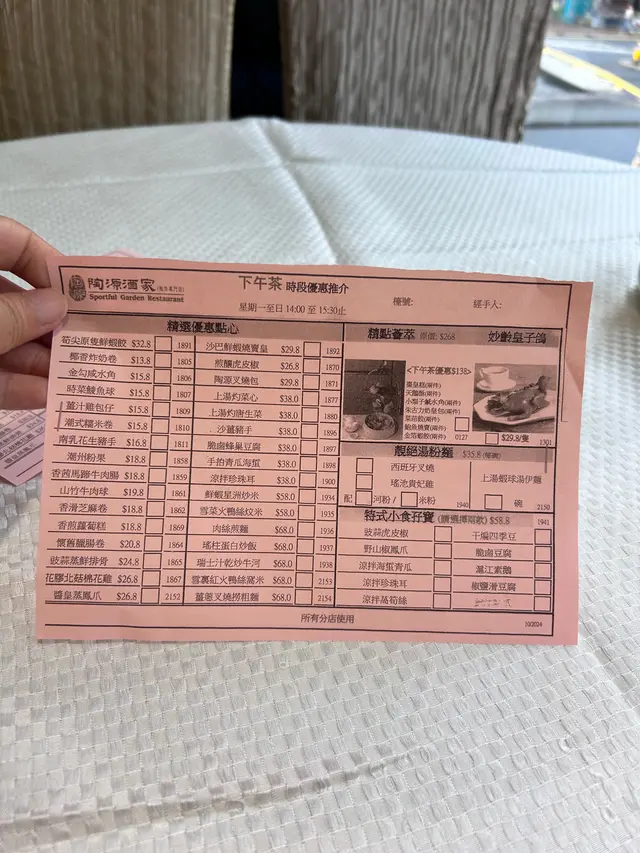 陶源酒家
Sportful Garden Restaurant
下午茶 時段優惠推介
星期一至日 14:00 至 15:30止
檯號:
經手人:
精選優惠點心
筍尖原隻鮮蝦餃 $32.8 1891
椰香炸奶卷 $13.8 1805
金勾咸水角 $15.8 1806
時菜鯪魚球 $15.8 1807
薑汁雞包仔 $15.8 1809
潮式糯米卷 $15.8 1810
南乳花生豬手 $16.8 1811
潮州粉果 $18.8 1858
香茜馬蹄牛肉腸 $18.8 1859
山竹牛肉球 $19.8 1861
香滑芝麻卷 $18.8 1862
香煎蘿蔔糕 $18.8 1869
懷舊臘腸卷 $20.8 1864
豉蒜蒸鮮排骨 $24.8 1865
花膠北菇棉花雞 $26.8 1867
醬皇蒸鳳爪 $26.8 2152
沙巴鮮蝦燒賣皇 $29.8 1892
煎釀虎皮椒 $26.8 1870
陶源叉燒包 $29.8 1871
上湯灼菜心 $38.0
上湯灼唐生菜 $38.0 1880
沙薑豬手 $38.0 1896
脆滷蜂巢豆腐 $38.0 1897
手拍青瓜海蜇 $38.0 1898
涼拌珍珠耳 $38.0 1900
鮮蝦星洲炒米 $58.0 1934
雪菜火鴨絲炆米 $58.0 1935
肉絲煎麵 $68.0 1936
瑤柱蛋白炒飯 $68.0 1937
瑞士汁乾炒牛河 $68.0 1938
雪裏紅火鴨絲窩米 $68.0 2153
薑蔥叉燒撈粗麵 $68.0 2154
精點薈萃 原價: $268
<下午茶優惠$138>
棗皇糕(兩件)
天鵝酥(兩件)
小梨子鹹水角(兩件)
朱古力奶皇包(兩件)
菜苗餃(兩件)
鮑魚燒賣(兩件)
金箔蝦餃(兩件) 0127
妙齡皇子鴿
$29.8/隻 1301
靚絕湯粉麵 $35.8 (每碗)
西班牙叉燒
瑤池貴妃雞
配 河粉 / 米粉 1940
上湯蝦球湯伊麵
碗 2150
特式小食孖寶 (請選擇兩款) $58.8 1941
豉蒜虎皮椒
野山椒鳳爪
涼拌海蜇青瓜
涼拌珍珠耳
涼拌萵筍絲
干煸四季豆
脆滷豆腐
滬江素鵝
椒鹽滑豆腐
所有分店使用
10/2024